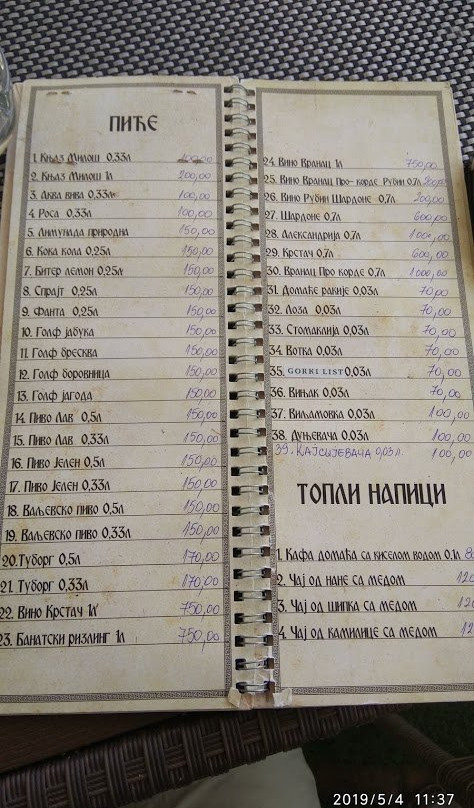 ПИЋЕ
1. Књаз Милош 0,33л 100,00
2. Књаз Милош 1л 200,00
3. Аква вива 0,33л 100,00
4. Роса 0,33л 100,00
5. Лимунада природна 150,00
6. Кока кола 0,25л 150,00
7. Битер лемон 0,25л 150,00
8. Спрајт 0,25л 150,00
9. Фанта 0,25л 150,00
10. Голф јабука 150,00
11. Голф бресква 150,00
12. Голф боровница 150,00
13. Голф јагода 150,00
14. Пиво Лав 0,5л 150,00
15. Пиво Лав 0,33л 150,00
16. Пиво Јелен 0,5л 150,00
17. Пиво Јелен 0,33л 150,00
18. Ваљевско пиво 0,5л 150,00
19. Ваљевско пиво 0,33л 150,00
20. Туборг 0,5л 170,00
21. Туборг 0,33л 170,00
22. Вино Крстач 1л 750,00
23. Банатски ризлинг 1л 750,00
24. Вино Вранац 1л 750,00
25. Вино Вранац Про-корде Рубин 0,7л
26. Вино Рубин Шардоне 0,7л
27. Шардоне 0,7л 600,00
28. Александрија 0,7л 1000,00
29. Крстач 0,7л 600,00
30. Вранац Про корде 0,7л 1000,00
31. Домаће ракије 0,03л 70,00
32. Лоза 0,03л 70,00
33. Стомаклија 0,03л 70,00
34. Вотка 0,03л 70,00
35. GORKI LIST 0,03л 70,00
36. Вињак 0,03л 70,00
37. Виљамовка 0,03л 100,00
38. Дуњевача 0,03л 100,00
39. КАЈСИЈЕВАЧА 0,03 л. 100,00
ТОПЛИ НАПИЦИ
1. Кафа домаћа са киселом водом 0,1л
2. Чај од нане са медом
3. Чај од шипка са медом
4. Чај од камилице са медом
2019/5/4 11:37